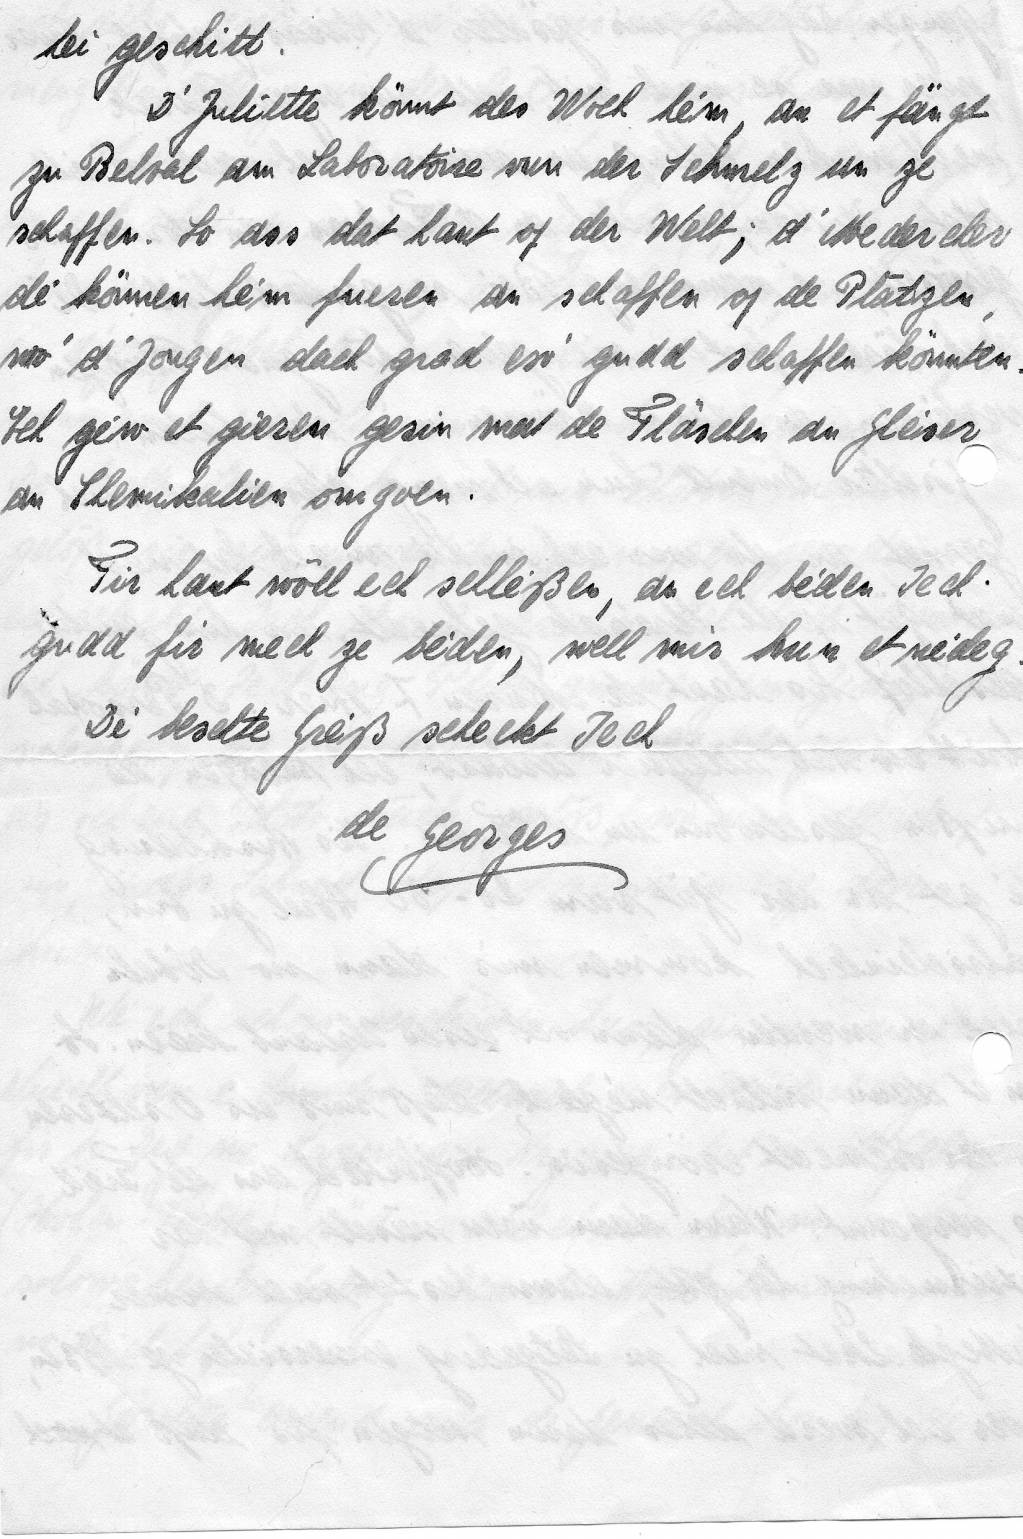 bei geschitt.
D' Juliette kömmt des Woch heim, an et fängt
zu Belval am Laboratoire vun der Schmelz un ze
schaffen. So ass dat haut op der Welt; d' Medercher
dei können heim fueren an schaffen op de Plätzen,
wó d' Jongen dach grad esó gudd schaffen könnten.
Ech géw et gieren gesin mat de Fläschen an Gleiser
an Chemikalien omgoen.
Fir haut wöll ech schleißen, an ech béiden Iech
gudd fir mech ze béiden, well mir hun et néideg.
Déi beschte Greiß scheckt Iech
de Georges